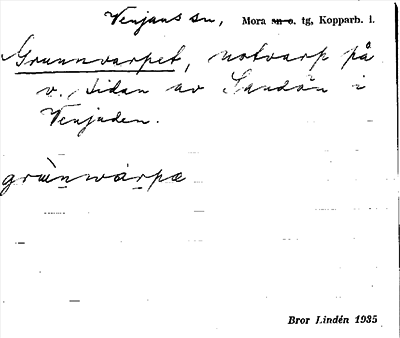 Venjans sn, Mora sn o. tg, Kopparb. l.
Grunnvarpet, notvarp på
v. sidan av Sandön i
Venjaden.
grùnwárpæ
Bror Lindén 1935